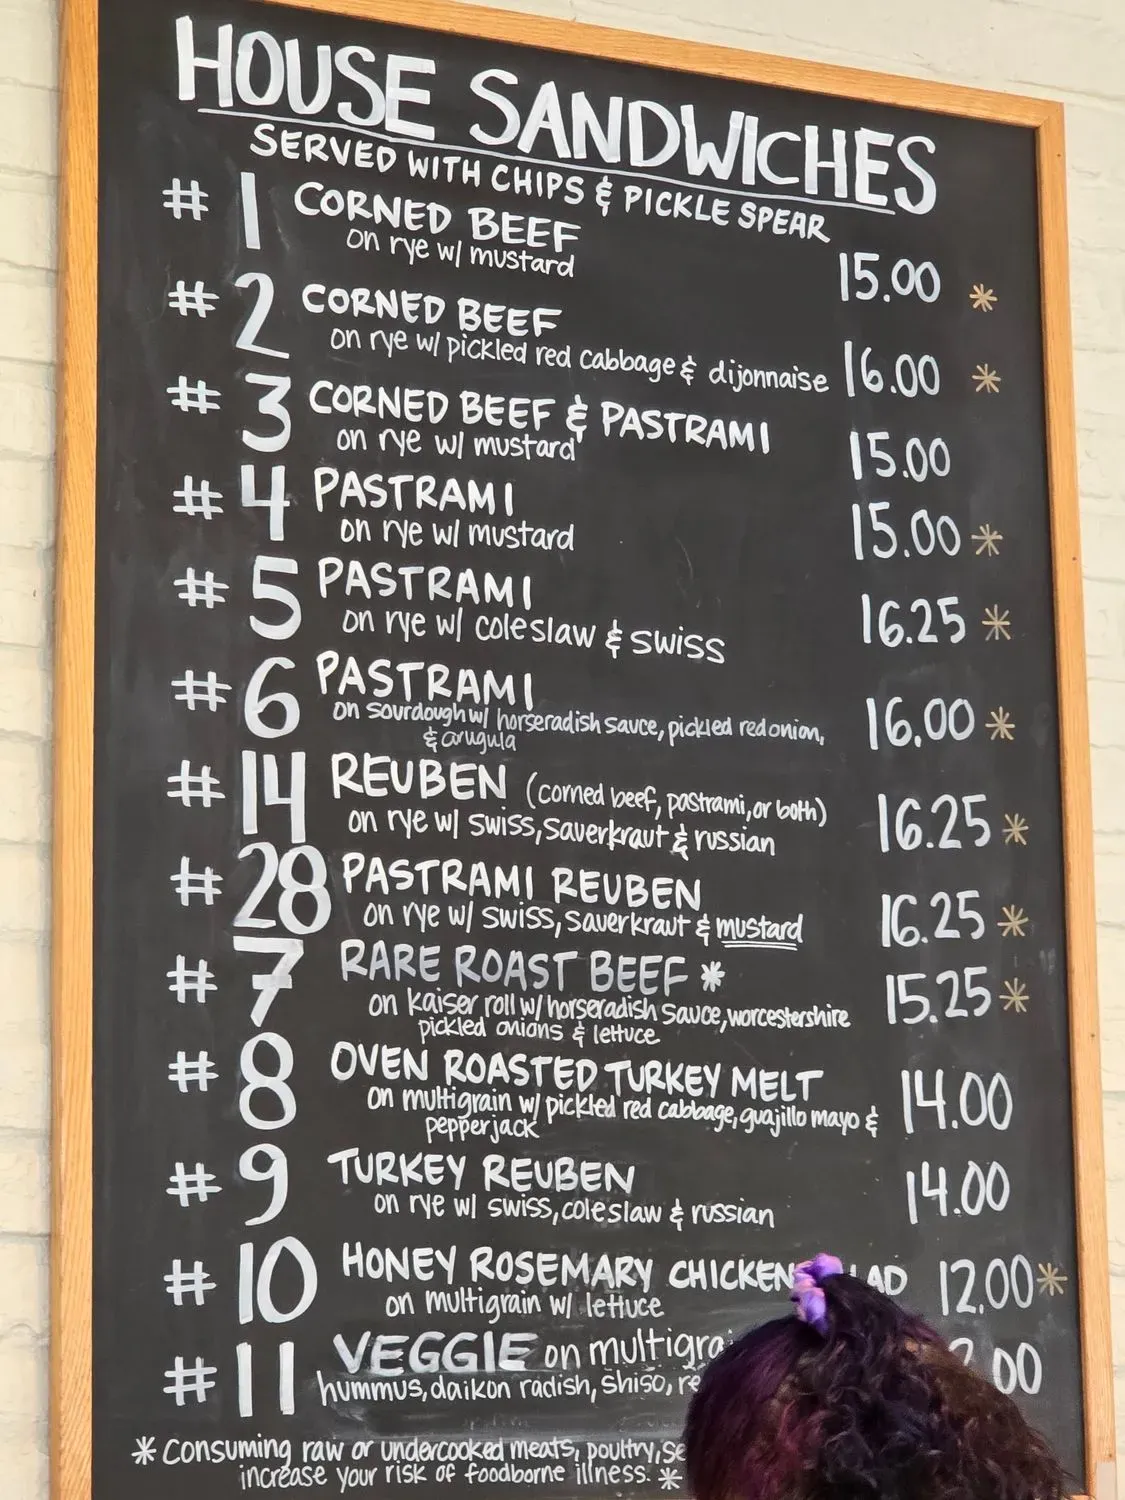 HOUSE SANDWICHES
SERVED WITH CHIPS & PICKLE SPEAR
#1 CORNED BEEF
on rye w/ mustard
15.00 *
#2 CORNED BEEF
on rye w/ pickled red cabbage & dijonnaise 16.00 *
#3 CORNED BEEF & PASTRAMI
on rye w/ mustard
15.00
#4 PASTRAMI
on rye w/ mustard
15.00 *
#5 PASTRAMI
on rye w/ coleslaw & swiss
16.25 *
#6 PASTRAMI
on sourdough w/ horseradish sauce, pickled red onion,
& arugula
16.00 *
#14 REUBEN (corned beef, pastrami, or both)
on rye w/ swiss, sauerkraut & russian
16.25 *
#28 PASTRAMI REUBEN
on rye w/ swiss, sauerkraut & mustard
16.25 *
#7 RARE ROAST BEEF *
on kaiser roll w/ horseradish sauce, worcestershire
pickled onions & lettuce
15.25 *
#8 OVEN ROASTED TURKEY MELT
on multigrain w/ pickled red cabbage, guajillo mayo &
pepperjack
14.00
#9 TURKEY REUBEN
on rye w/ swiss, coleslaw & russian
14.00
#10 HONEY ROSEMARY CHICKEN LAD 12.00 *
on multigrain w/ lettuce
#11 VEGGIE on multigrai
hummus, daikon radish, shiso, re
.00
* Consuming raw or undercooked meats, poultry, se
increase your risk of foodborne illness. *